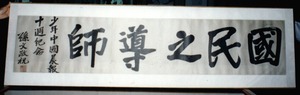 國民之導師
少年中國晨報
十週紀念
孫文敬祝